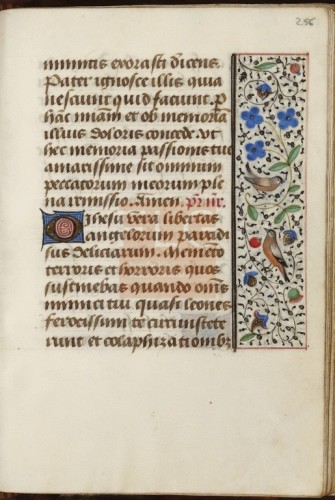 256
mimitis exorasti dicens
Pater ignosce illis quia
nesciunt quid faciunt. P
hāc miāʒ et ob memoriā
illius doloris concede. vt
hec memoria passionis tue
amarissime sit omnium
peccatorum meorum ple
na remissio. Amen. pr̄ nr̄.
O ihesu vera libertas
angelorum paradi
sus deliciarum. Memēto
terroris et horroris quos
sustinebas quando om̄s
inimici tui quasi leones
ferocissimi te circūstete
runt et colaphizationibʒ